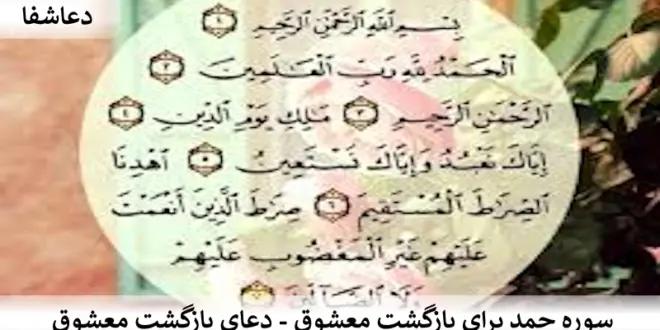 دعاشفا
بِسْمِ ٱللَّهِ ٱلرَّحْمَٰنِ ٱلرَّحِيمِ ١
ٱلْحَمْدُ لِلَّهِ رَبِّ ٱلْعَٰلَمِينَ ٢
ٱلرَّحْمَٰنِ ٱلرَّحِيمِ ٣ مَٰلِكِ يَوْمِ ٱلدِّينِ ٤
إِيَّاكَ نَعْبُدُ وَإِيَّاكَ نَسْتَعِينُ ٥ ٱهْدِنَا
ٱلصِّرَٰطَ ٱلْمُسْتَقِيمَ ٦ صِرَٰطَ ٱلَّذِينَ أَنْعَمْتَ
عَلَيْهِمْ غَيْرِ ٱلْمَغْضُوبِ عَلَيْهِمْ
وَلَا ٱلضَّآلِّينَ ٧
سوره حمد برای بازگشت معشوق - دعای بازگشت معشوق